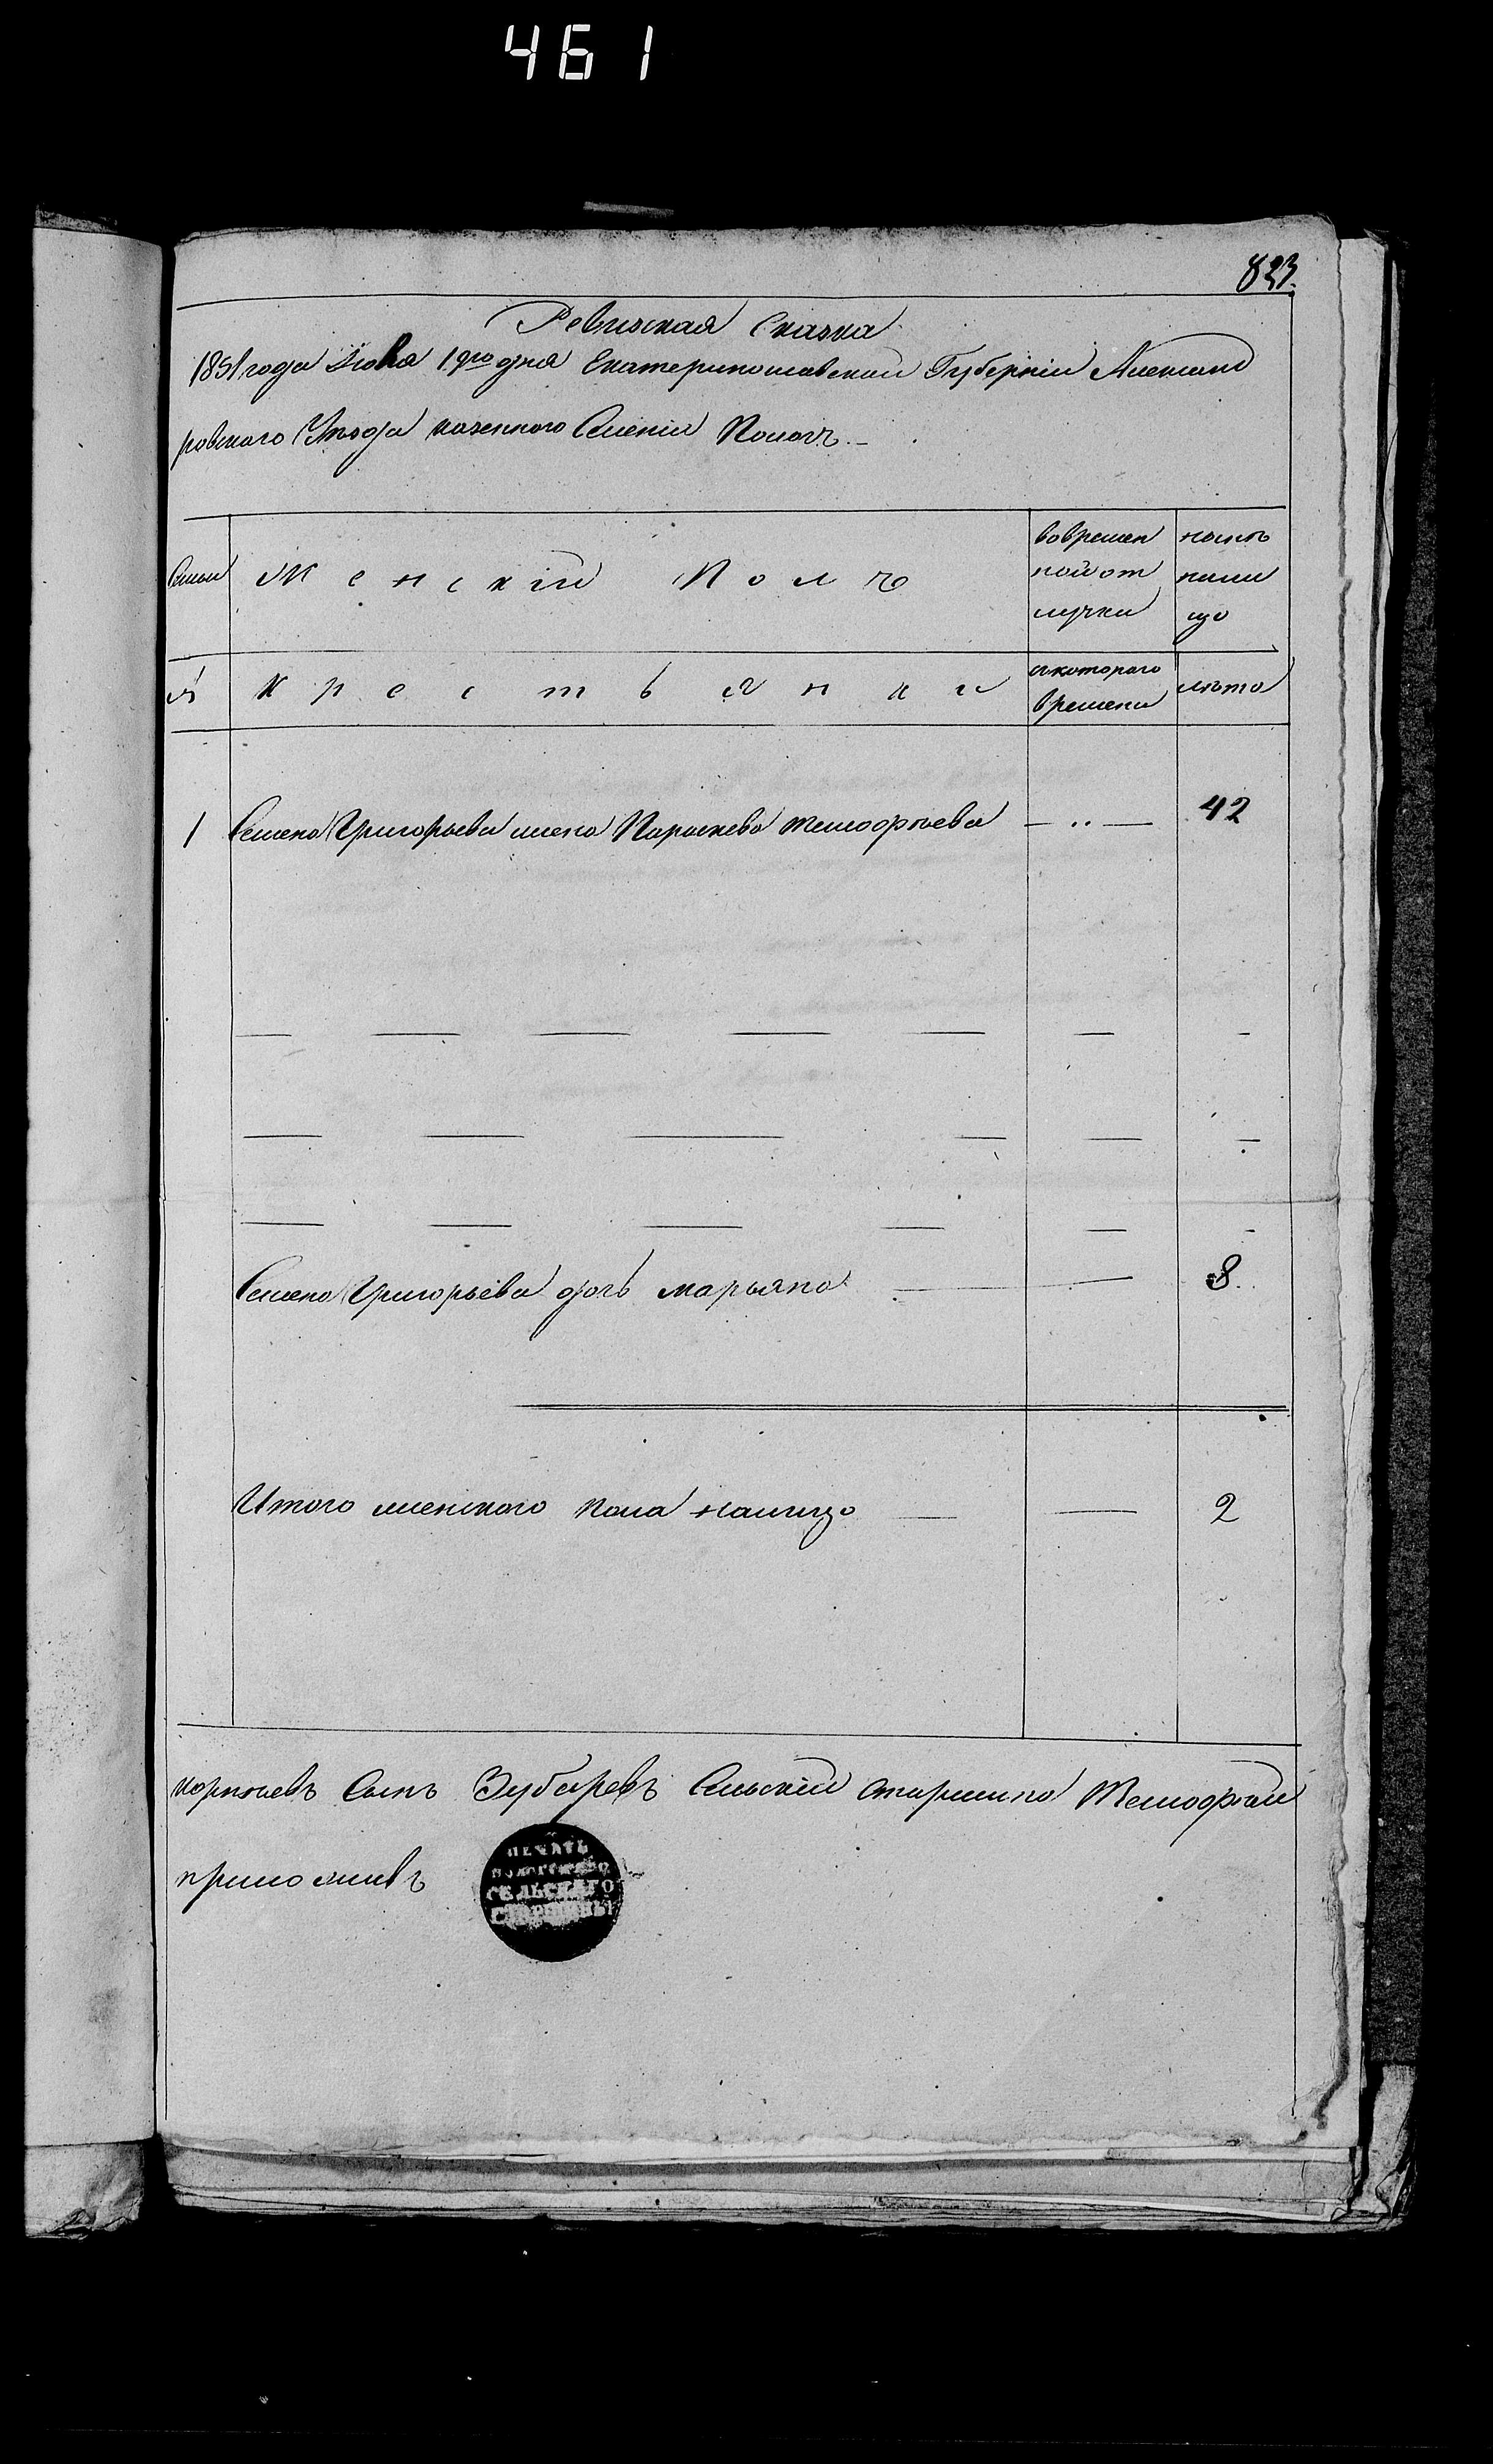 461
823.
Ревизская Сказка
1851 года Июня 1го дня Екатеринославской Губерніи Александ
ровскаго Уѣзда казеннаго Селенія Пологъ.
Семьи Женскій Полъ вовремен нынѣ
ной от нали
лучки цо
№ Крестьянки скотораго лѣта
времени
1 Семена Григорьева жена Параскева Тимофѣева — " — 42
Семена Григорьева дочь марьяна — — 8.
Итого женского пола налицо — — 2
Сынъ Зубаревъ Сельскій старшина Тимофѣй
приложилъ
ПЕЧАТЬ
СЕЛЬСКАГО
СТАРШИНЫ